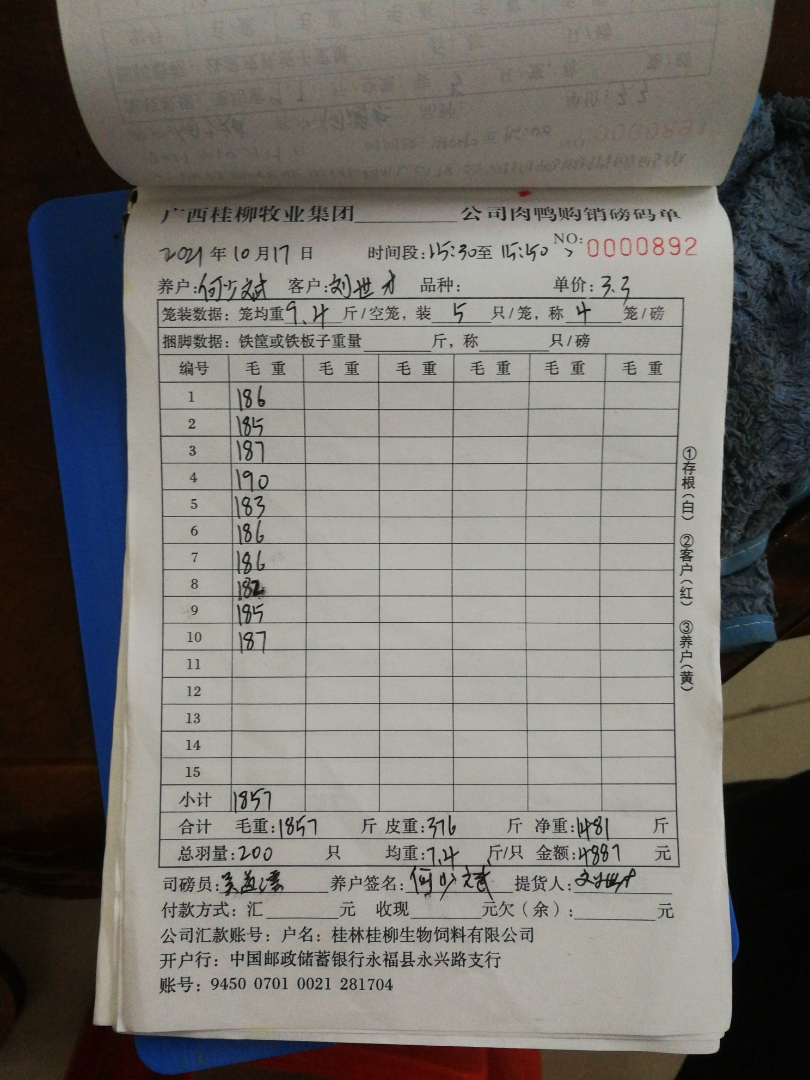 广西桂柳牧业集团________公司肉鸭购销磅码单
2021年10月17日 时间段:15:30至15:50 NO:0000892
养户:何少斌 客户:刘世才 品种: 单价:3.3
笼装数据:笼均重9.4斤/空笼,装5只/笼,称4笼/磅
捆脚数据:铁筐或铁板子重量______斤,称______只/磅
编号 毛重 毛重 毛重 毛重 毛重 毛重
1 186
2 185
3 187
4 190
5 183
6 186
7 186
8 182
9 185
10 187
11
12
13
14
15
小计 1857
合计 毛重:1857斤 皮重:376斤 净重:1481斤
总羽量:200只 均重:7.4斤/只 金额:4887元
司磅员: 养户签名:何少斌 提货人:
付款方式:汇______元 收现______元欠(余):______元
公司汇款账号:户名:桂林桂柳生物饲料有限公司
开户行:中国邮政储蓄银行永福县永兴路支行
账号:9450 0701 0021 281704
①存根(白) ②客户(红) ③养户(黄)